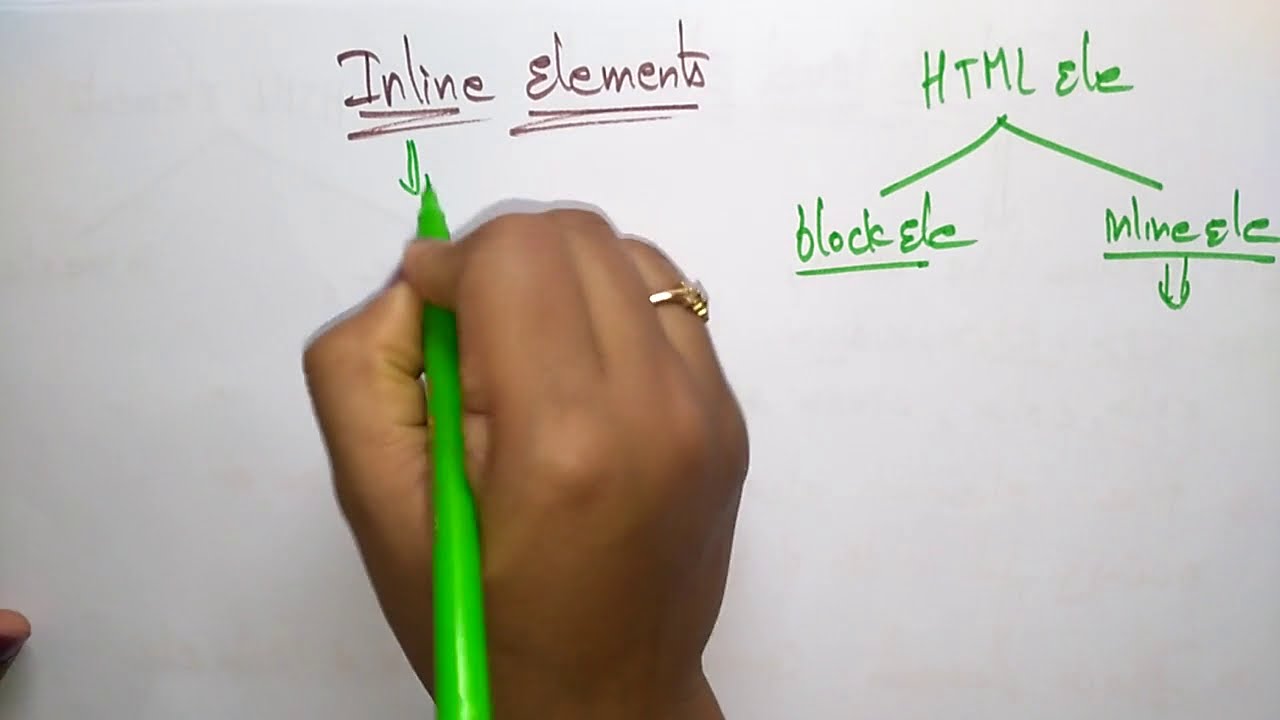 Inline Elements
HTML Ele
block Ele
Inline Ele